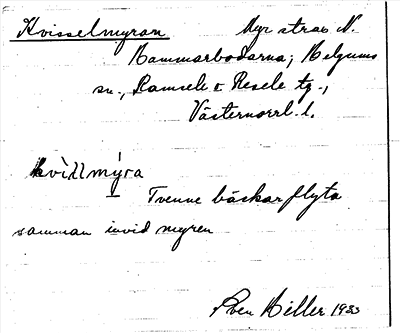 Kvisselmyran Myr strax N.
Kammarbodarna; Helgums
sn., Ramsele o. Resele tg.,
Västernorrl. l.
kvìllmýra
Tvenne bäckar flyta
samman invid myren
Sven Hiller 1933